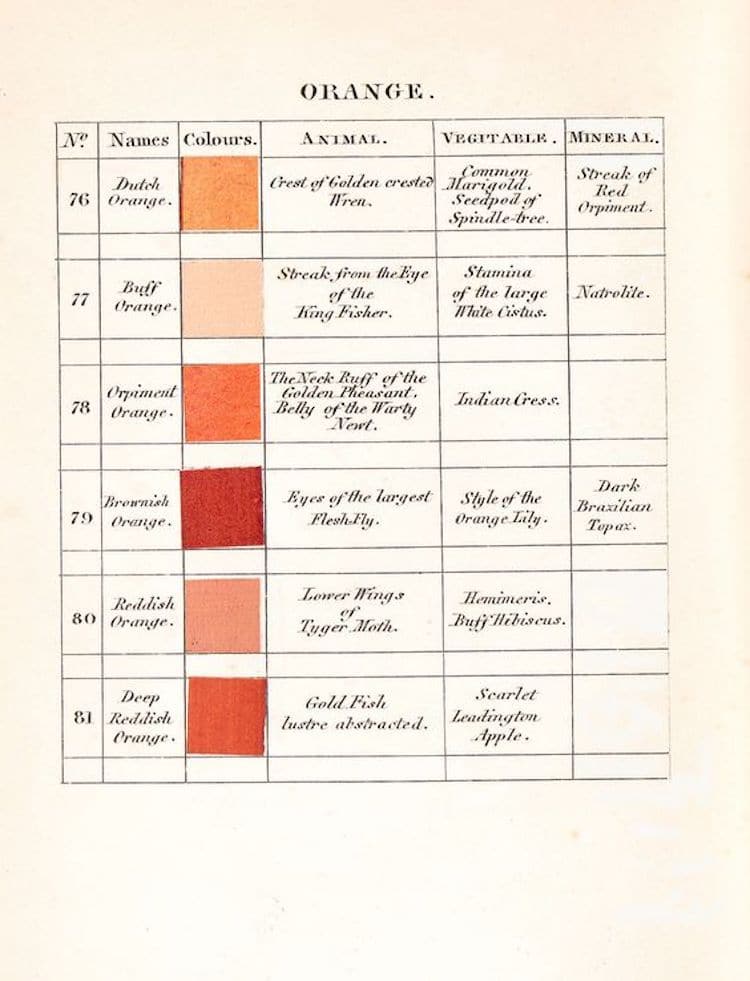 ORANGE.
No. Names Colours. ANIMAL. VEGITABLE. MINERAL.
76
Dutch
Orange.
Crest of Golden crested
Wren.
Common
Marigold.
Seedpod of
Spindle-tree.
Streak of
Red
Orpiment.
77
Buff
Orange.
Streak from the Eye
of the
King Fisher.
Stamina
of the large
White Cistus.
Natrolite.
78
Orpiment
Orange.
The Neck Ruff of the
Golden Pheasant,
Belly of the Warty
Newt.
Indian Cress.
79
Brownish
Orange.
Eyes of the largest
Flesh Fly.
Style of the
Orange Lily.
Dark
Brazilian
Topaz.
80
Reddish
Orange.
Lower Wings
of
Tyger Moth.
Hemimeris.
Buff Hibiscus.
81
Deep
Reddish
Orange.
Gold Fish
lustre abstracted.
Scarlet
Leadington
Apple.